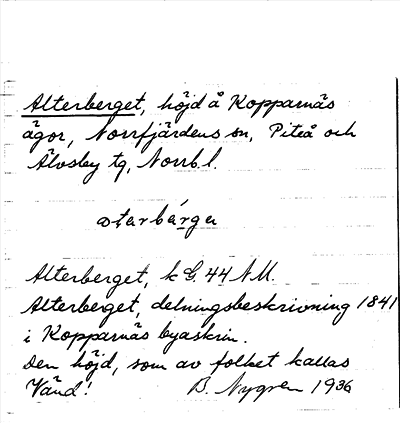 Alterberget, höjd å Kopparnäs
ägor, Norrfjärdens sn, Piteå och
Älvsby tg, Norrb. l.
Alterberget, k G. 44 NU.
Alterberget, delningsbeskrivning 1841
i Kopparnäs byaskrin.
Den höjd, som av folket kallas
Vänd! B. Nygren 1936